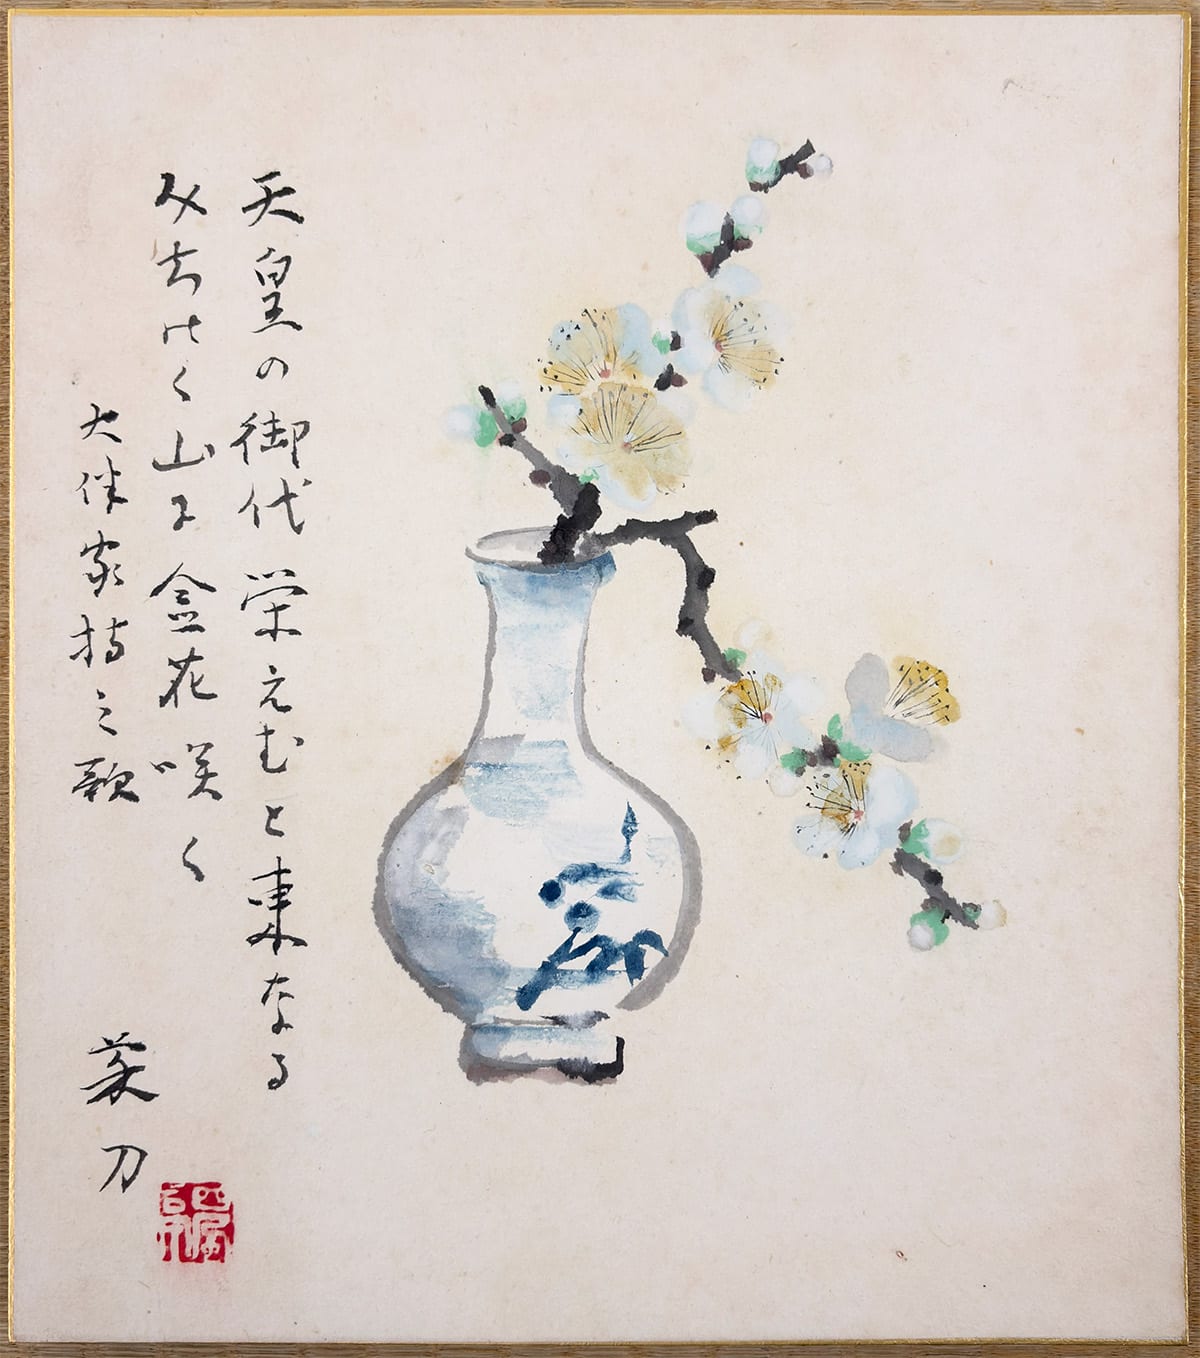 天皇の御代栄えむと東なる
みちのく山に金花咲く
大伴家持之歌
菜刀